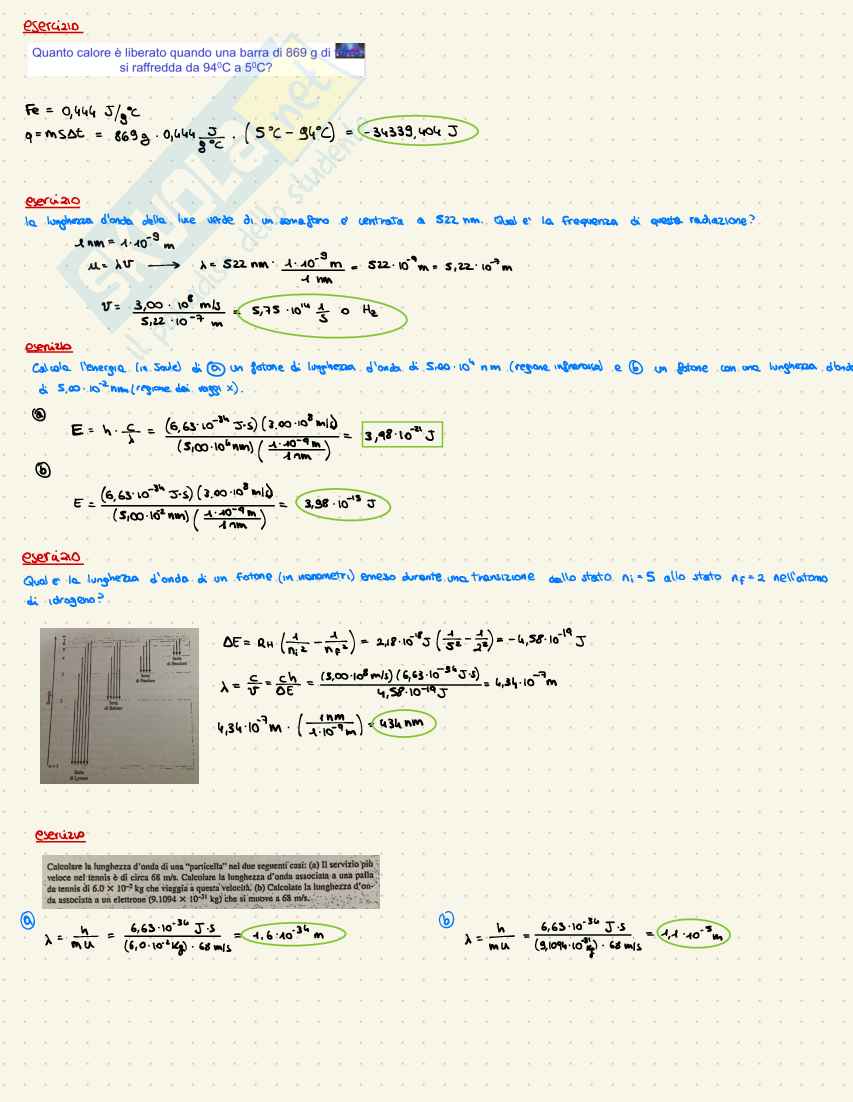 esercizio
Quanto calore è liberato quando una barra di 869 g di
si raffredda da 94°C a 5°C?
Fe = 0,444 J/g°C
q = m S Δt = 869 g · 0,444 J/g°C · (5°C - 94°C) = -34339,404 J
esercizio
la lunghezza d'onda della luce verde di un semaforo e' centrata a 522 nm. Qual e' la frequenza di questa radiazione?
1 nm = 1·10⁻⁹ m
u = λν ⟶ λ = 522 nm · 1·10⁻⁹ m / 1 nm = 522·10⁻⁹ m = 5,22·10⁻⁷ m
ν = 3,00·10⁸ m/s / 5,22·10⁻⁷ m = 5,75·10¹⁴ 1/s o Hz
esercizio
Calcola l'energia (in Joule) di (a) un fotone di lunghezza d'onda di 5,00·10⁴ nm (regione infrarossa) e (b) un fotone con una lunghezza d'onda
di 5,00·10⁻² nm (regione dei raggi x).
(a)
E = h · c/λ = (6,63·10⁻³⁴ J·s)(3.00·10⁸ m/s) / (5,00·10⁴ nm)(1·10⁻⁹ m / 1 nm) = 3,98·10⁻²¹ J
(b)
E = (6,63·10⁻³⁴ J·s)(3.00·10⁸ m/s) / (5,00·10² nm)(1·10⁻⁹ m / 1 nm) = 3,98·10⁻¹⁵ J
esercizio
Qual e la lunghezza d'onda di un fotone (in nanometri) emesso durante una transizione dallo stato nᵢ = 5 allo stato n_F = 2 nell'atomo
di idrogeno?
ΔE = R_H · (1/nᵢ² - 1/n_F²) = 2,18·10⁻¹⁸ J (1/5² - 1/2²) = -4,58·10⁻¹⁹ J
λ = c/ν = ch/ΔE = (3,00·10⁸ m/s)(6,63·10⁻³⁴ J·s) / 4,58·10⁻¹⁹ J = 4,34·10⁻⁷ m
4,34·10⁻⁷ m · (1 nm / 1·10⁻⁹ m) = 434 nm
Energia
n = 1
Serie
di Lyman
Serie
di Balmer
Serie
di Paschen
Serie
di Brackett
esercizio
Calcolare la lunghezza d'onda di una "particella" nei due seguenti casi: (a) Il servizio più
veloce nel tennis è di circa 68 m/s. Calcolare la lunghezza d'onda associata a una palla
da tennis di 6.0 × 10⁻² kg che viaggia a questa velocità. (b) Calcolate la lunghezza d'on-
da associata a un elettrone (9.1094 × 10⁻³¹ kg) che si muove a 68 m/s.
(a) λ = h/mu = 6,63·10⁻³⁴ J·s / (6,0·10⁻² kg) · 68 m/s = 1,6·10⁻³⁴ m
(b) λ = h/mu = 6,63·10⁻³⁴ J·s / (9,1094·10⁻³¹ kg) · 68 m/s = 1,1·10⁻⁵ m
SKUOLA.net
il paradiso dello studente